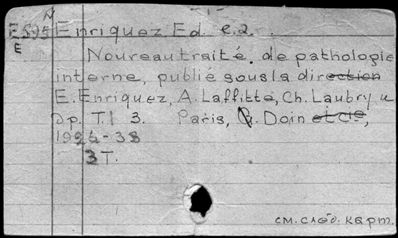 N
E595 Enriquez Ed. e.2.
E
Nouveau traité de pathologie
interne, publié sous la direction
E. Enriquez, A. Laffitte, Ch. Laubry и
др. T.1 3. Paris, G. Doin et cie,
1926-38
3 T.
см. след. карт.